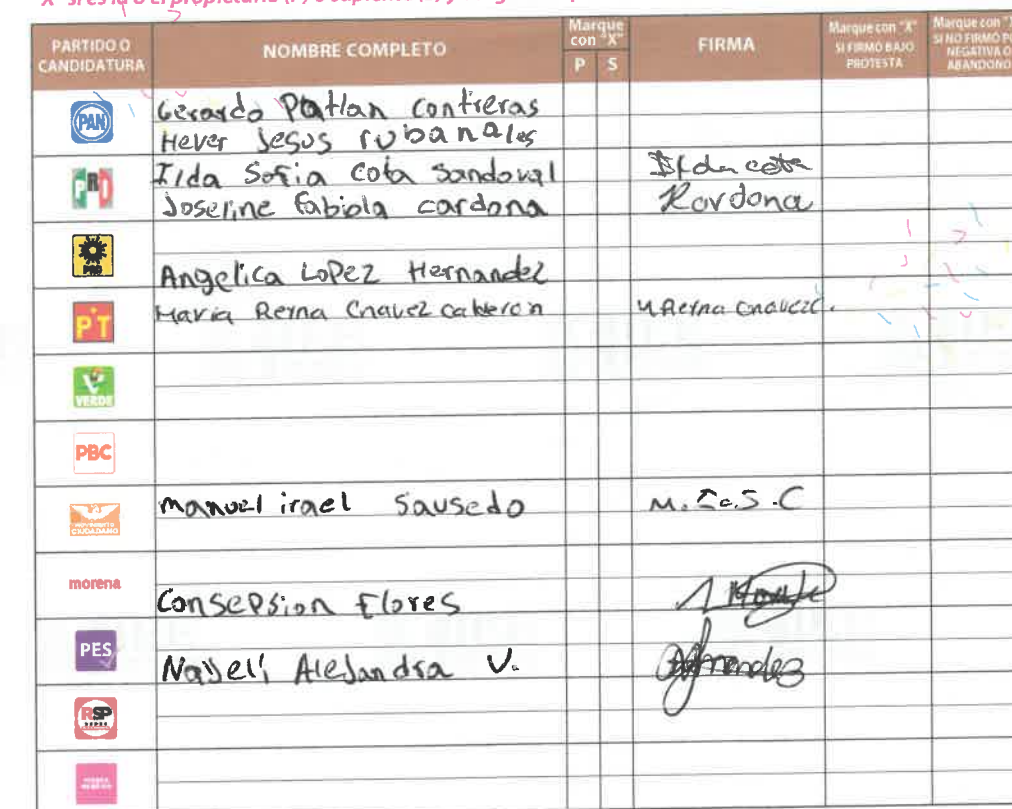 PARTIDO O CANDIDATURA
NOMBRE COMPLETO
Marque con "X"
P S
FIRMA
Marque con "X" SI FIRMÓ BAJO PROTESTA
Marque con "X" SI NO FIRMÓ NEGATIVA O ABANDONO
PAN
Gerardo Patlan Contreras
Hever Jesus rubanales
PRI
Ilda Sofia Cota Sandoval
Ilda cota
Joseline fabiola cardona
Kardona
PRD
Angelica LoPez Hernandez
PT
Maria Reyna Chavez calderon
M Reyna Chavez C.
VERDE
PBC
MOVIMIENTO CIUDADANO
manuel irael Sausedo
M. I. S. C
morena
Consepsion flores
PES
Nayeli Alejandra V.
RSP